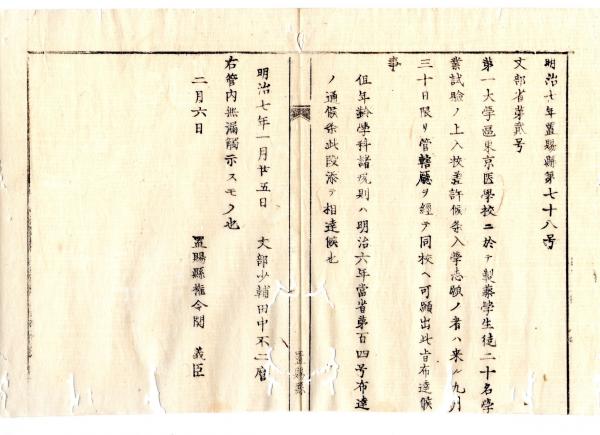 明治七年置賜縣第七十八号
文部省第貳号
第一大学區東京医學校ニ於テ製藥學生徒二十名學
業試驗ノ上入校差許候条入學志願ノ者ハ来ル九月
三十日限リ管轄廳ヲ經テ同校ヘ可願出此旨布達候
事
但年齢學科諸規則ハ明治六年當省第百四号布達
ノ通候条此段添テ相達候也
置賜縣
明治七年一月廿五日 文部少輔田中不二麿
右管内無漏觸示スモノ也
二月六日 置賜縣權令関 義臣